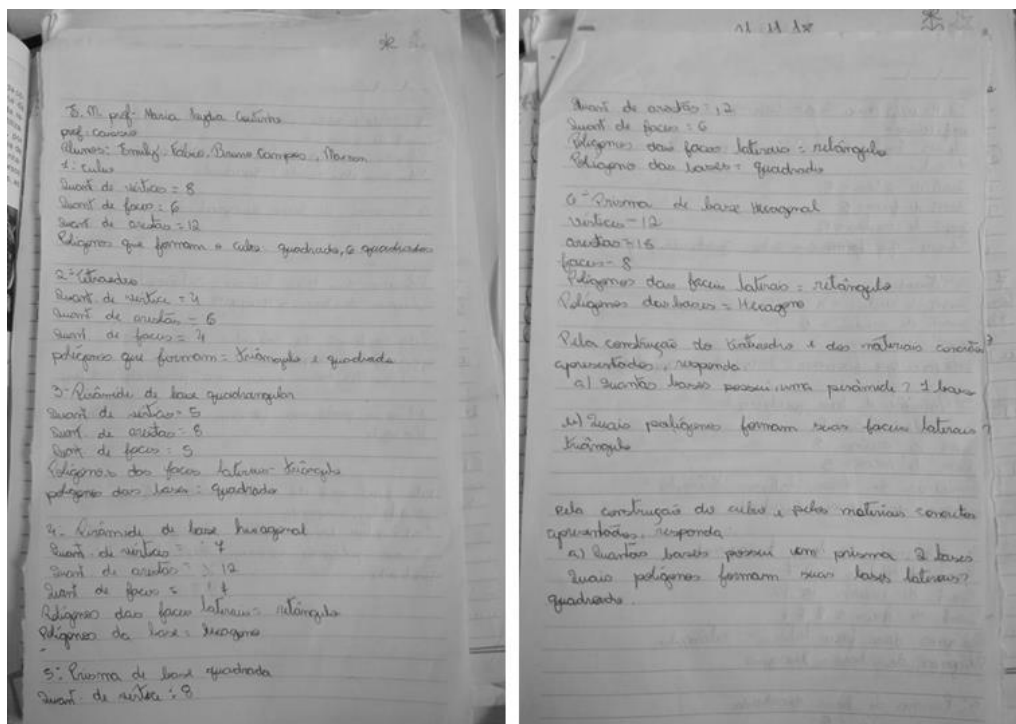 E. M. prof- Maria Coutinho
prof:
Alunos: Emily, Fabio, Bruno Campos,
1: cubo
Quant de vértices = 8
Quant de faces: 6
Quant de arestas = 12
Polígonos que formam o cubo: quadrado, 6 quadrados
2- tetraedro
Quant. de vértice = 4
Quant de arestas = 6
Quant de faces: 4
polígonos que formam = triângulo e quadrado
3- Pirâmide de base quadrangular
Quant de vértices = 5
Quant. de arestas = 8
Quant de faces: 5
Polígonos das faces laterais- triângulo
polígono das bases: quadrado
4- Pirâmide de base hexagonal
Quant de vértices = 7
Quant de arestas = 12
Quant de faces =
Polígonos das faces laterais = retângulo
Polígonos da base: hexagono
5: Prisma de base quadrada
Quant. de vértice : 8
Quant de arestas = 12
Quant de faces = 6
Polígono das faces laterais = retângulo
Polígono das bases = quadrado
6- Prisma de base Hexagonal
vértices - 12
arestas =
faces - 8
Polígonos das faces laterais = retângulo
Polígonos das bases = Hexagono
Pela construção do e dos materiais concretos
apresentados, responda
a) Quantas bases possui uma pirâmide? 1 base
b) Quais polígonos formam suas faces laterais?
triângulo
Pela construção do cubo e pelos materiais concretos
apresentados, responda
a) Quantas bases possui um prisma 2 bases
Quais polígonos formam suas bases laterais?
quadrado.